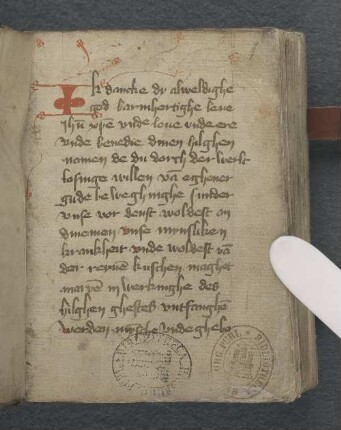 Ik dancke dy alweldighe
god barmhertighe leue
jhu xpe vnde loue vnde ere
vnde benedie dinen hilghen
namen de du dorch der werlt
losinge willen vā eghener
gude beweghinghe sunder
vnse vor denst woldest an
dinemen vnse mynsliken
krankheit vnde woldest vā
der reynē kuschen maghet
marien in werkinghe des
hilghen ghestes vntfanghē
werden mynsche vnde ghebo